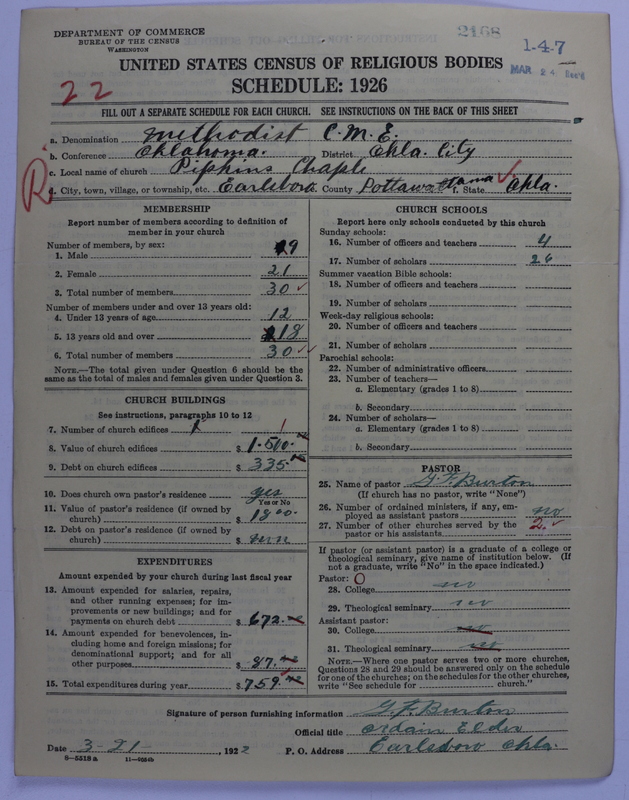 DEPARTMENT OF COMMERCE
BUREAU OF THE CENSUS
WASHINGTON
2168
1-4-7
MAR 24
UNITED STATES CENSUS OF RELIGIOUS BODIES
SCHEDULE: 1926
22
FILL OUT A SEPARATE SCHEDULE FOR EACH CHURCH. SEE INSTRUCTIONS ON THE BACK OF THIS SHEET
a. Denomination Methodist C.M.E.
b. Conference Oklahoma. District Okla. City
c. Local name of church Pipkins Chaple
R
d. City, town, village, or township, etc. Earlsboro County Pottawattama State Okla.
MEMBERSHIP
Report number of members according to definition of
member in your church
Number of members, by sex:
1. Male 9
2. Female 21
3. Total number of members 30
Number of members under and over 13 years old:
4. Under 13 years of age 12
5. 13 years old and over 18
6. Total number of members 30
NOTE.—The total given under Question 6 should be the
same as the total of males and females given under Question 3.
CHURCH BUILDINGS
See instructions, paragraphs 10 to 12
7. Number of church edifices 1
8. Value of church edifices $ 1.500.
9. Debt on church edifices $ 335.
10. Does church own pastor's residence yes
Yes or No
11. Value of pastor's residence (if owned by
church) $ 1800
12. Debt on pastor's residence (if owned by
church) $ none
EXPENDITURES
Amount expended by your church during last fiscal year
13. Amount expended for salaries, repairs,
and other running expenses; for im-
provements or new buildings; and for
payments on church debt $ 672.
14. Amount expended for benevolences, in-
cluding home and foreign missions; for
denominational support; and for all
other purposes $ 87.
15. Total expenditures during year $ 759.
CHURCH SCHOOLS
Report here only schools conducted by this church
Sunday schools:
16. Number of officers and teachers 4
17. Number of scholars 26
Summer vacation Bible schools:
18. Number of officers and teachers
19. Number of scholars
Week-day religious schools:
20. Number of officers and teachers
21. Number of scholars
Parochial schools:
22. Number of administrative officers
23. Number of teachers—
a. Elementary (grades 1 to 8)
b. Secondary
24. Number of scholars—
a. Elementary (grades 1 to 8)
b. Secondary
PASTOR
25. Name of pastor G. F. Burton
(If church has no pastor, write "None")
26. Number of ordained ministers, if any, em-
ployed as assistant pastors no
27. Number of other churches served by the
pastor or his assistants 2.
If pastor (or assistant pastor) is a graduate of a college or
theological seminary, give name of institution below. (If
not a graduate, write "No" in the space indicated.)
Pastor: O
28. College no
29. Theological seminary no
Assistant pastor:
30. College no
31. Theological seminary no
NOTE.—Where one pastor serves two or more churches,
Questions 28 and 29 should be answered only on the schedule
for one of the churches; on the schedules for the other churches,
write "See schedule for church."
Signature of person furnishing information G. F. Burton
Official title Ordain Elder
Date 3-21-, 1922 P. O. Address Earlsboro Okla.
8-5518 a